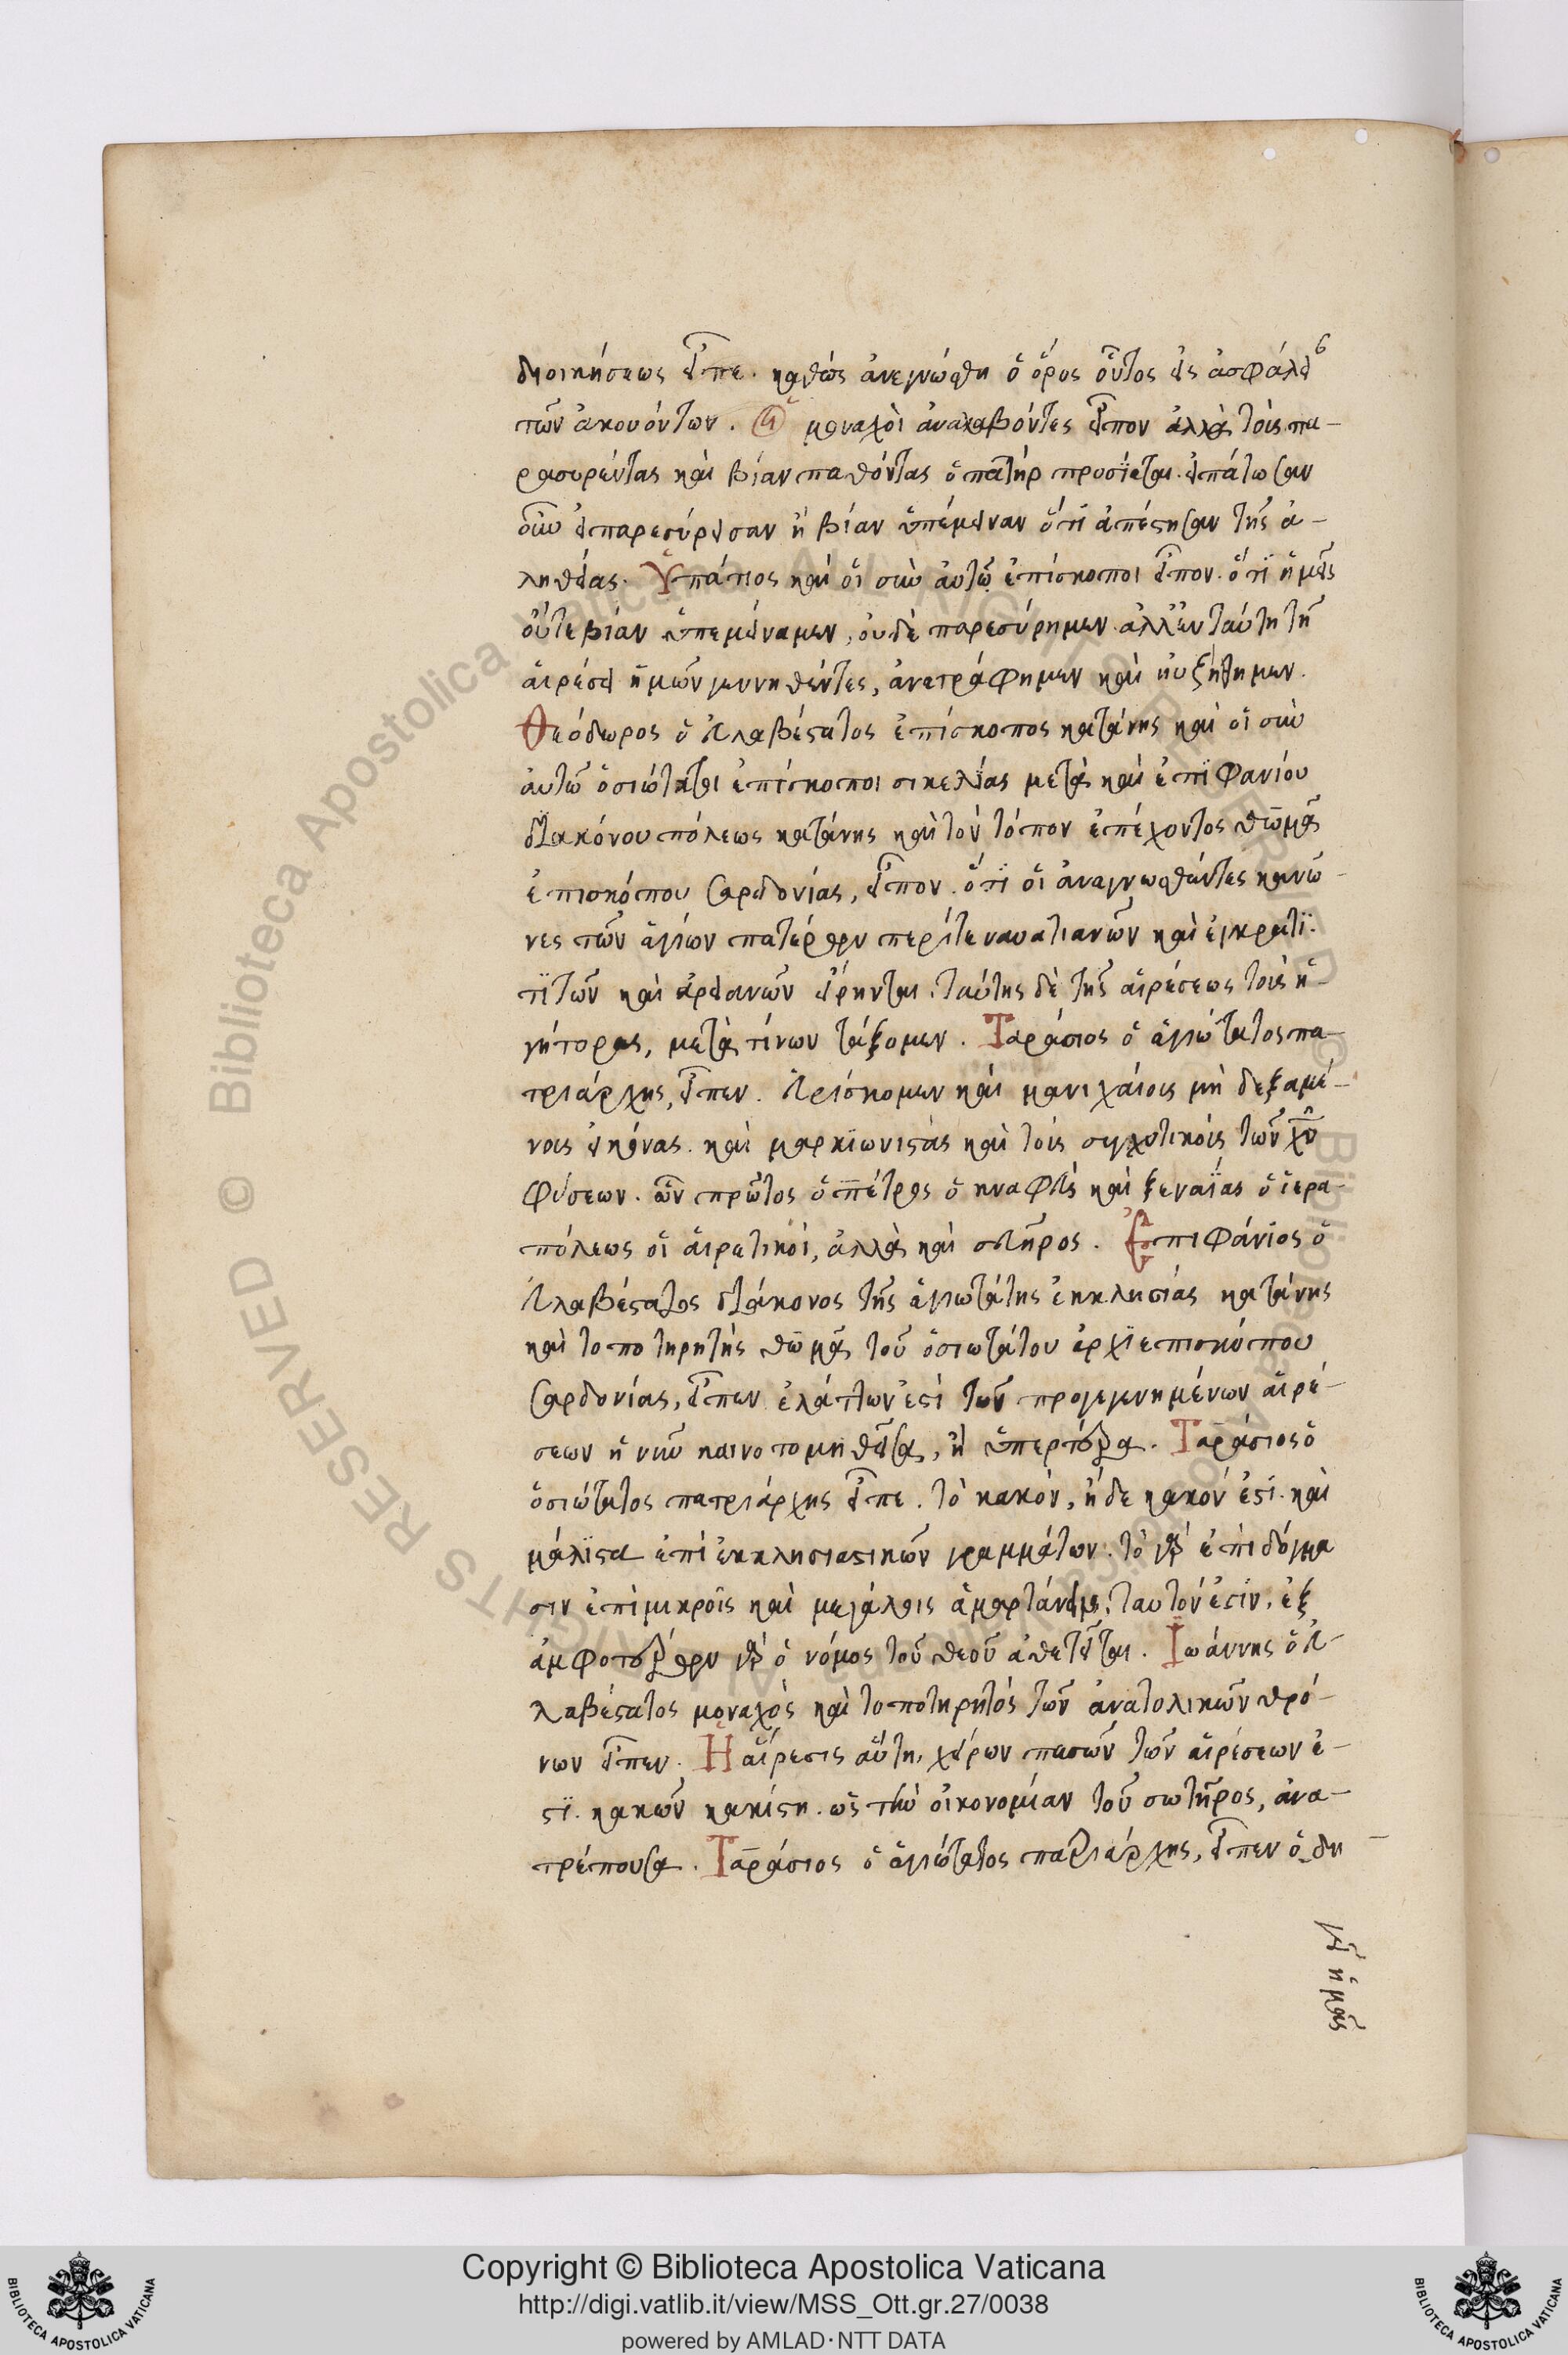 διοικήσεως εἶπε. καθὼς ἀνεγνώσθη ὁ ὅρος οὗτος εἰς ἀσφάλει
τῶν ἀκουόντων. οἱ μοναχοὶ ἀναλαβόντες εἶπον ἀλλὰ τοὺς πα-
ρασυρέντας καὶ βίαν παθόντας ὁ πατὴρ προσίεται. εἰπάτωσαν
οὖν εἰ παρεσύρησαν ἢ βίαν ὑπέμειναν ὅτι ἀπέστησαν τῆς ἀ-
ληθείας. Ὑπάτιος καὶ οἱ σὺν αὐτῷ ἐπίσκοποι εἶπον. ὅτι ἡμεῖς
οὔτε βίαν ὑπεμείναμεν, οὐδὲ παρεσύρημεν. ἀλλ' ἐν ταύτη τῆ
αἱρέσει ἡμῶν γεννηθέντες, ἀνετράφημεν καὶ ηὐξήθημεν.
Θεόδωρος ὁ εὐλαβέστατος ἐπίσκοπος κατάνης καὶ οἱ σὺν
αὐτῶ ὁσιώτατοι ἐπίσκοποι σικελίας μετὰ καὶ ἐπιφανίου
διακόνου πόλεως κατάνης καὶ τὸν τόπον ἐπέχοντος θωμᾶ
ἐπισκόπου σαρδονίας, εἶπον. ὅτι οἱ ἀναγνωσθέντες κανώ-
νες τῶν ἁγίων πατέρων περί τε ναυατιανῶν καὶ ἐγκρατι-
τιτῶν καὶ ἀρειανῶν εἴρηνται. ταύτης δὲ τῆς αἱρέσεως τοὺς ἡ-
γήτορας, μετὰ τίνων τάξομεν. Ταράσιος ὁ ἁγιώτατος πα-
τριάρχης, εἶπεν. εὑρίσκομεν καὶ μανιχαίους μὴ δεξαμέ-
νους εἰκόνας. καὶ μαρκιωνιστὰς καὶ τοὺς συγχυτικοὺς τῶν χυ
φύσεων. ὧν πρῶτος ὁ πέτρος ὁ κναφεὺς καὶ ξεναΐας ὁ ἱερα-
πόλεως οἱ αἱρετικοί, ἀλλὰ καὶ σευῆρος. Ἐπιφάνιος ὁ
εὐλαβέστατος διάκονος τῆς ἁγιωτάτης ἐκκλησίας κατάνης
καὶ τοποτηρητὴς θωμᾶ τοῦ ὁσιωτάτου ἀρχιεπισκόπου
σαρδονίας, εἶπεν ἐλάττων ἐστὶ τῶν προγεγενημένων αἱρέ-
σεων ἡ νῦν καινοτομηθεῖσα, ἢ ὑπερτέρα. Ταράσιος ὁ
ὁσιώτατος πατριάρχης εἶπε. τὸ κακὸν, ἤδε κακόν ἐστι. καὶ
μάλιστα ἐπὶ ἐκκλησιαστικῶν γραμμάτων. τὸ γὰρ ἐπὶ δόγμα
σιν ἐπὶ μικροῖς καὶ μεγάλοις ἁμαρτάνειν, ταυτόν ἐστιν. ἐξ
ἀμφοτέρων γὰρ ὁ νόμος τοῦ θεοῦ ἀθετεῖται. Ἰωάννης ὁ εὐ-
λαβέστατος μοναχὸς καὶ τοποτηρητὸς τῶν ἀνατολικῶν θρό-
νων εἶπεν. Ἡ αἵρεσις αὕτη, χείρων πασῶν τῶν αἱρέσεων ἐ-
στι. κακῶν κακίστη. ὡς τὴν οἰκονομίαν τοῦ σωτῆρος, ἀνα-
τρέπουσα. Ταράσιος ὁ ἁγιώτατος πατριάρχης, εἶπεν ὁ δη
ἡμᾶς
Copyright © Biblioteca Apostolica Vaticana
http://digi.vatlib.it/view/MSS_Ott.gr.27/0038
powered by AMLAD·NTT DATA